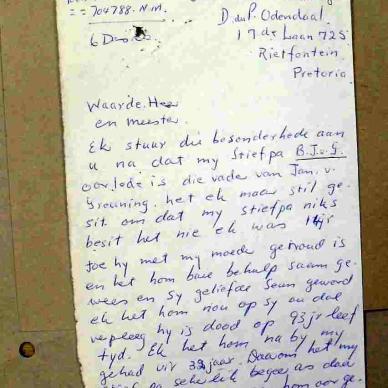 == 704788. N.M.
D. du P. Odendaal.
17 de Laan 725
Rietfontein
Pretoria.
Waarde. Heer
en meester.
Ek stuur die besonderhede aan
u na dat my Stiefpa B.J.v.G.
oorlede is die vader van Jan. v.
Greuning. het ek maar stil ge-
sit om dat my stiefpa niks
besit het nie ek was 14jr
toe hy met my moede getroud is
en het hom baie behulp saam ge-
wees en sy geliefde Seun geword
ek het hom nou op sy ou dal
verpleeg hy is dood op 93 jr leef
tyd. Ek het hom na by my
gehad vir 32 jaar. Daarom het my